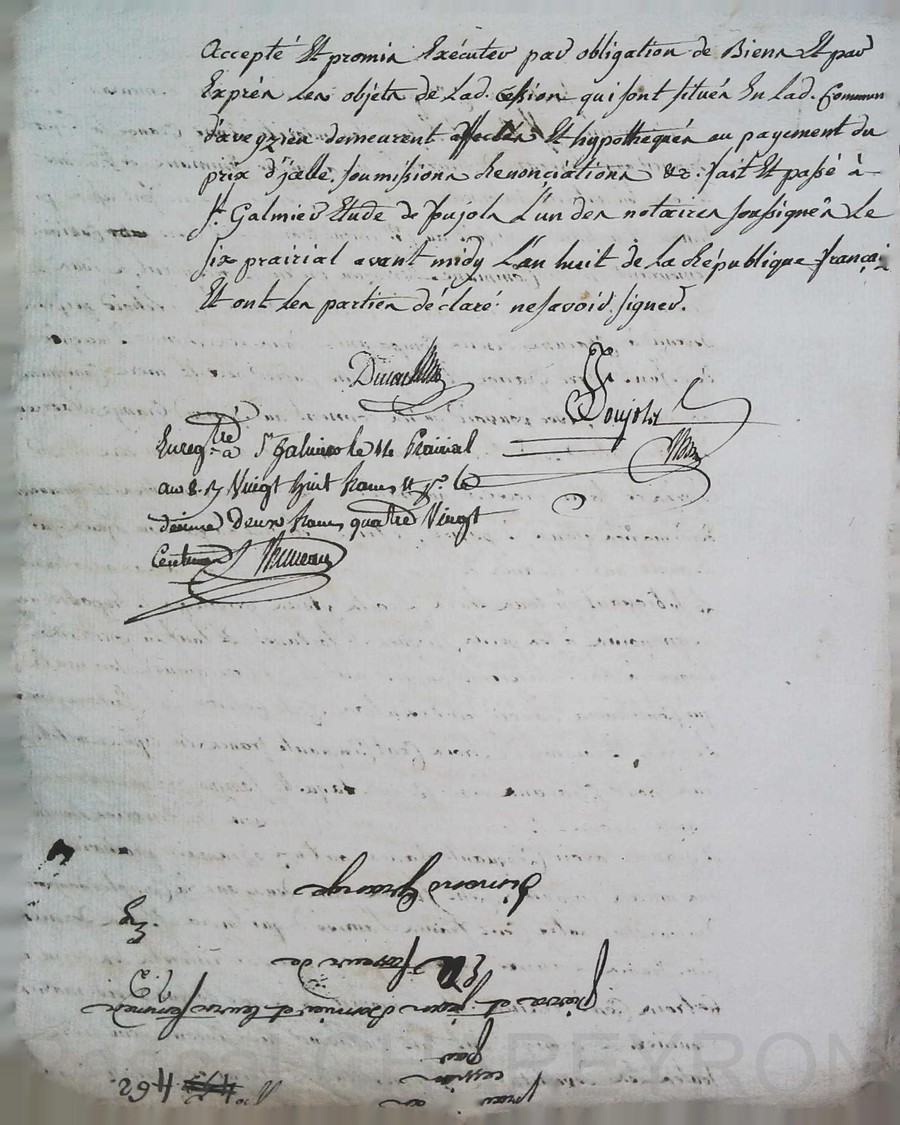 accepté Et promis Exécuter par obligation de Biens Et par
Exprès Les objets de Lad. cession qui sont situés En Lad. Commun
d'aveyzieu demeurent affectés Et hypothequés au payement du
prix d'jcelle, soumissions Renonciations &c: fait Et passé à
St. Galmier Etude de poujols L'un des notaires soussignés Le
six prairial avant midy L'an huit de La République françai
Et ont Les parties déclaré ne savoir signer.
Poujols
Enregtré à St Galmier le 14 Prairial
an 8. Vingt huit francs
décime deux francs quatre Vingt
Centimes
an 8 prai
cession
par
pierre et jean et leurs femmes
En faveur de
simond Grange
No 462